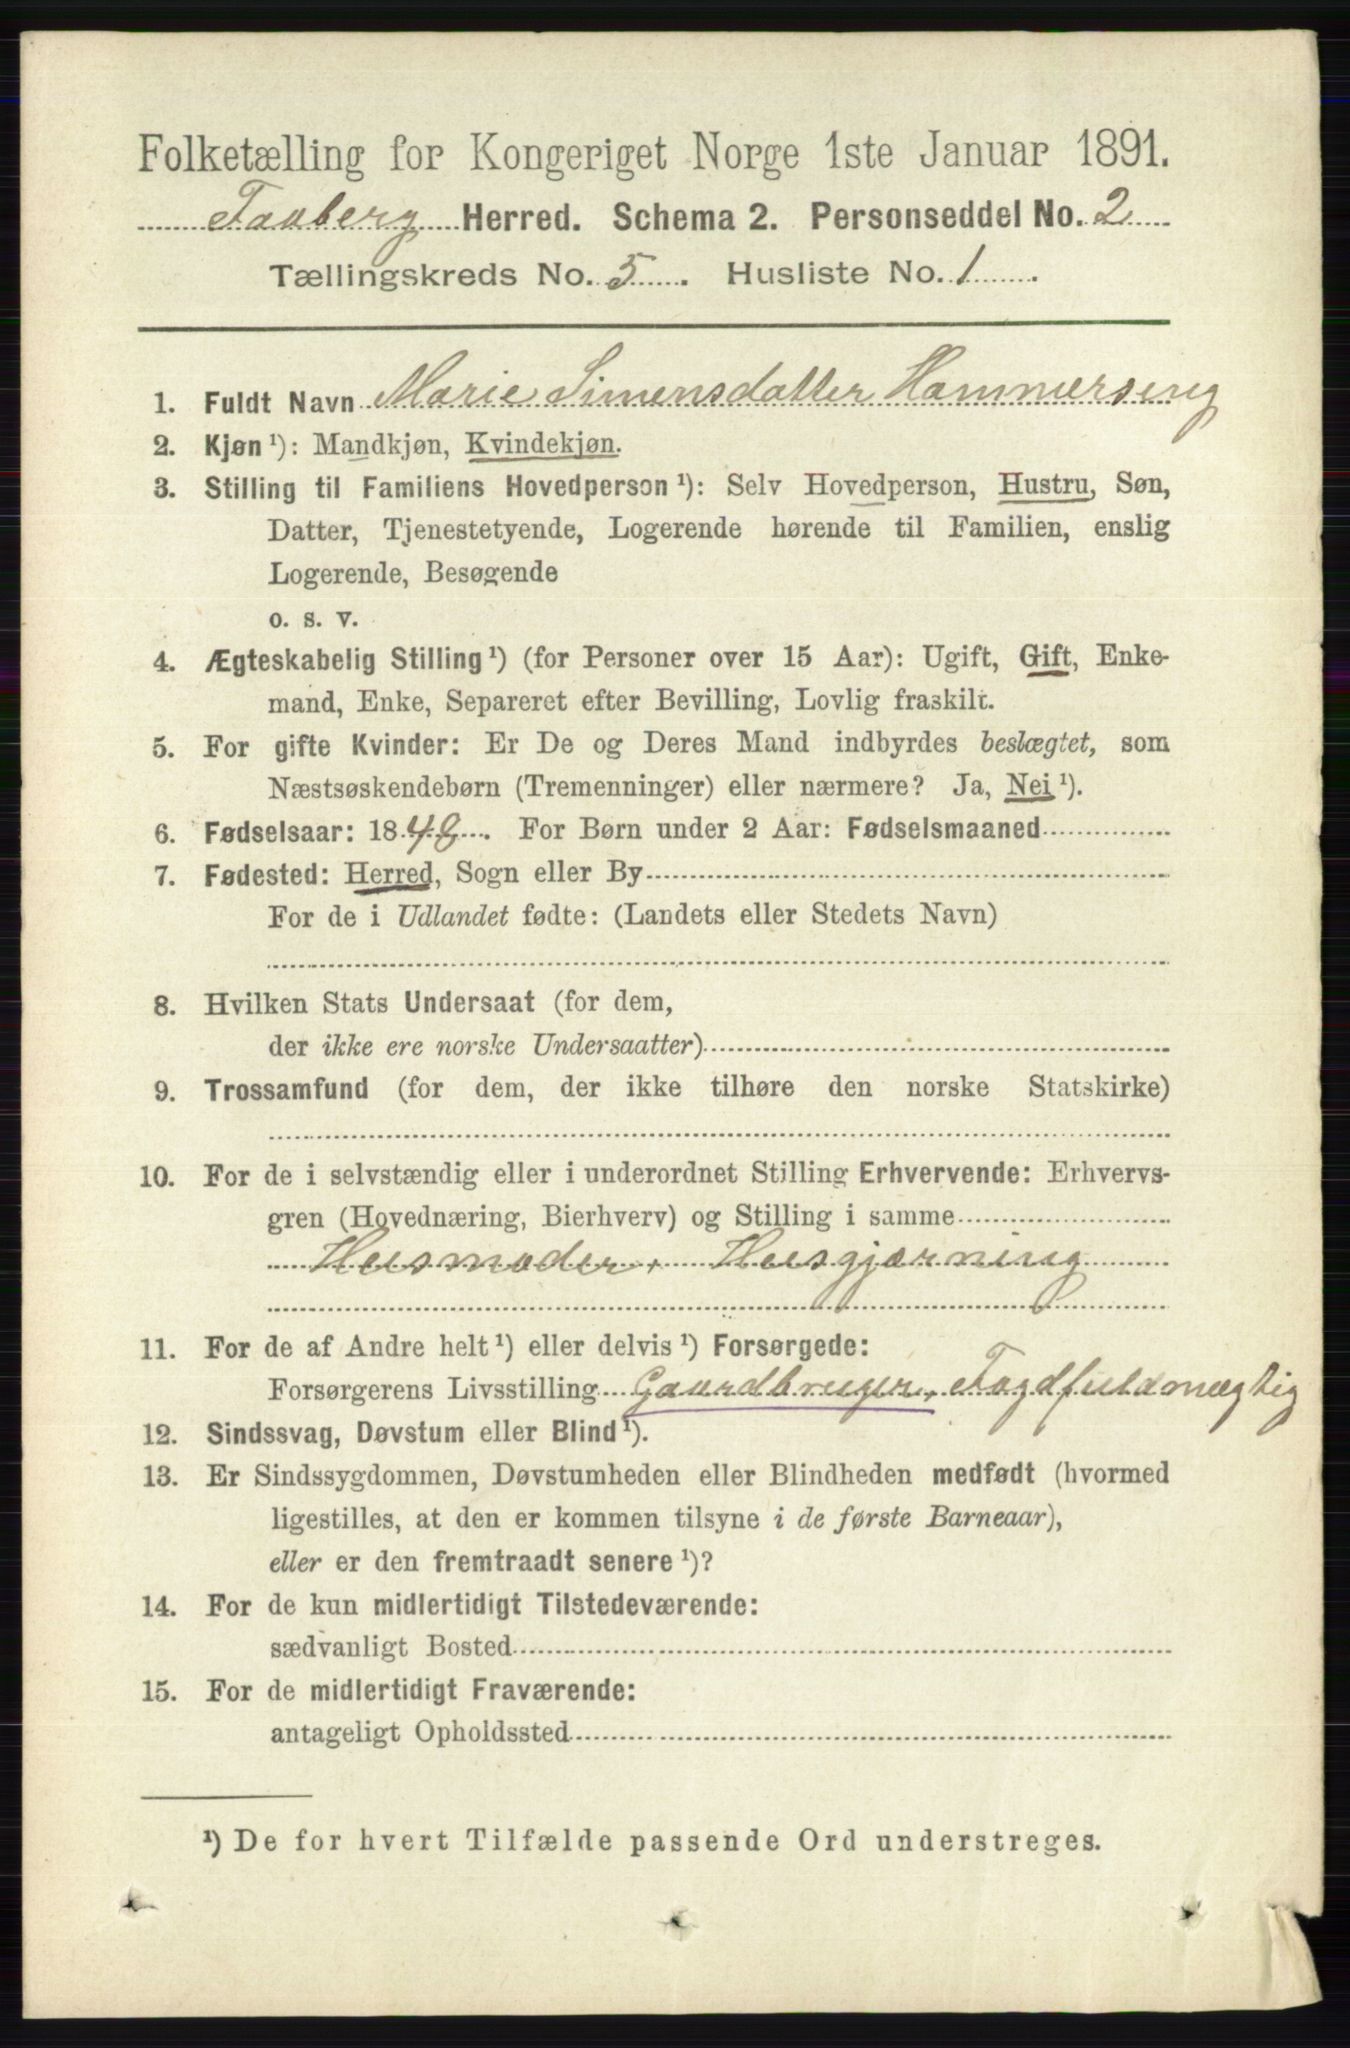 Folketælling for Kongeriget Norge 1ste Januar 1891.
Faaberg Herred. Schema 2. Personseddel No. 2
Tællingskreds No. 5. Husliste No. 1.
1. Fuldt Navn Marie Simensdatter Hammerseng
2. Kjøn ¹): Mandkjøn, Kvindekjøn.
3. Stilling til Familiens Hovedperson ¹): Selv Hovedperson, Hustru, Søn,
Datter, Tjenestetyende, Logerende hørende til Familien, enslig
Logerende, Besøgende
o. s. v.
4. Ægteskabelig Stilling ¹) (for Personer over 15 Aar): Ugift, Gift, Enke-
mand, Enke, Separeret efter Bevilling, Lovlig fraskilt.
5. For gifte Kvinder: Er De og Deres Mand indbyrdes beslægtet, som
Næstsøskendebørn (Tremenninger) eller nærmere? Ja, Nei ¹).
6. Fødselsaar: 1848. For Børn under 2 Aar: Fødselsmaaned
7. Fødested: Herred, Sogn eller By
For de i Udlandet fødte: (Landets eller Stedets Navn)
8. Hvilken Stats Undersaat (for dem,
der ikke ere norske Undersaatter)
9. Trossamfund (for dem, der ikke tilhøre den norske Statskirke)
10. For de i selvstændig eller i underordnet Stilling Erhvervende: Erhvervs-
gren (Hovednæring, Bierhverv) og Stilling i samme
Husmoder, Husgjærning
11. For de af Andre helt ¹) eller delvis ¹) Forsørgede:
Forsørgerens Livsstilling Gaardbruger, Fogdfuldmægtig
12. Sindssvag, Døvstum eller Blind ¹).
13. Er Sindssygdommen, Døvstumheden eller Blindheden medfødt (hvormed
ligestilles, at den er kommen tilsyne i de første Barneaar),
eller er den fremtraadt senere ¹)?
14. For de kun midlertidigt Tilstedeværende:
sædvanligt Bosted
15. For de midlertidigt Fraværende:
antageligt Opholdssted
¹) De for hvert Tilfælde passende Ord understreges.